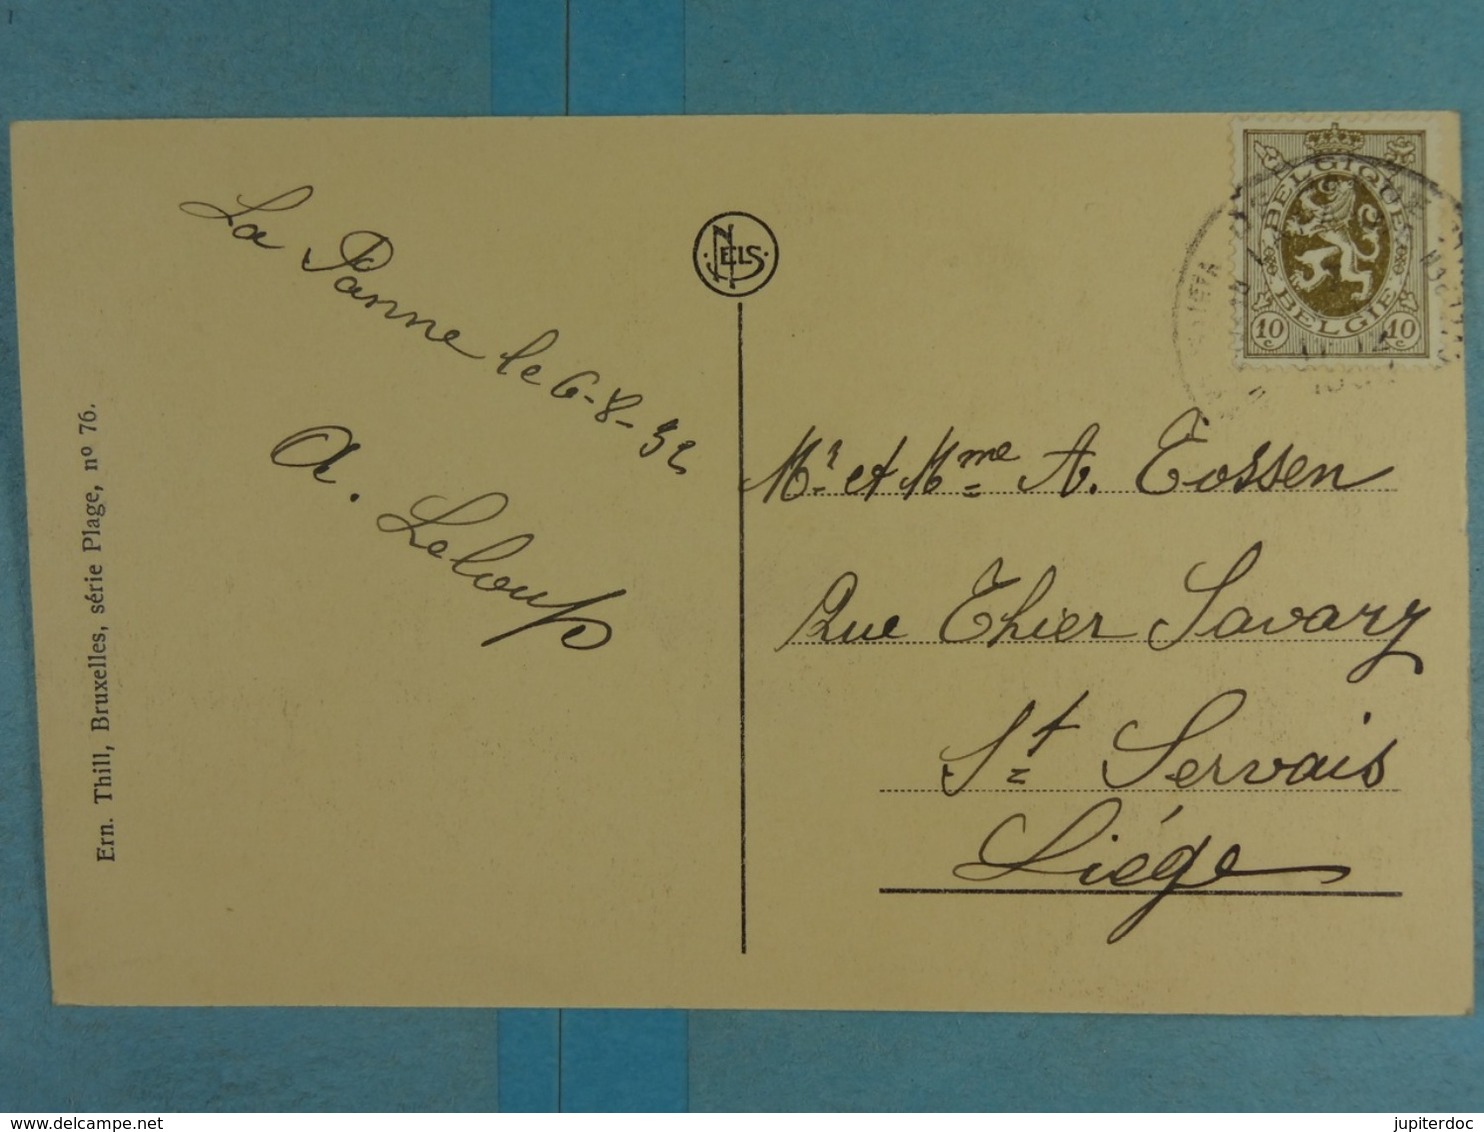 La Panne le 6-8-32
A. Leloup
Ern. Thill, Bruxelles, série Plage, nº 76.
NELS
BELGIQUE
BELGIE
10 c 10 c
Mr et Mme A. Tossen
Rue Thier Savary
St Servais
Liége
delcampe.net
jupiterdoc